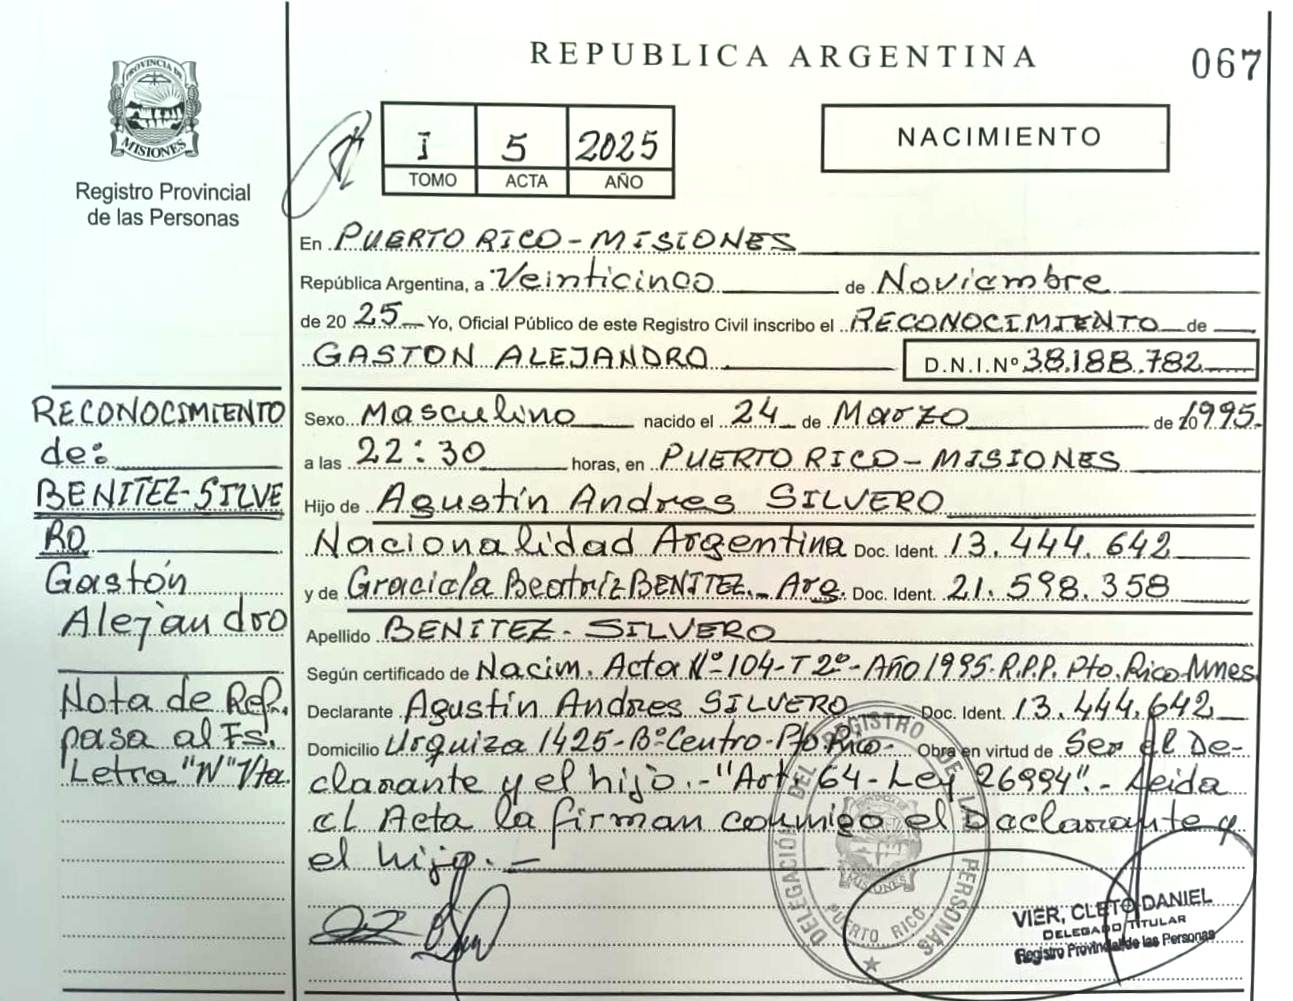 REPUBLICA ARGENTINA
067
PROVINCIA DE
MISIONES
Registro Provincial
de las Personas
I 5 2025
TOMO ACTA AÑO
NACIMIENTO
En PUERTO RICO - MISIONES
República Argentina, a Veinticinco de Noviembre
de 20 25 Yo, Oficial Público de este Registro Civil inscribo el RECONOCIMIENTO de
GASTON ALEJANDRO D.N.I.Nº 38.188.782
Sexo Masculino nacido el 24 de Marzo de 1995.
a las 22:30 horas, en PUERTO RICO - MISIONES
Hijo de Agustín Andres SILVERO
Nacionalidad Argentina Doc. Ident. 13.444.642
y de Graciela Beatriz BENITEZ.- Arg. Doc. Ident. 21.598.358
Apellido BENITEZ - SILVERO
Según certificado de Nacim. Acta Nº 104-T 2º-Año 1995-R.P.P. Pto. Rico-Mnes.
Declarante Agustín Andres SILVERO Doc. Ident. 13.444.642
Domicilio Urquiza 1425-Bº Centro-Pto Rico- Obra en virtud de Ser el De-
clarante y el hijo.-"Art. 64-Ley 26994".- Leida
el Acta la firman conmigo el Declarante y
el hijo.-
RECONOCIMIENTO
de:
BENITEZ-SILVE
RO
Gastón
Alejandro
Nota de Ref.
pasa al Fs.
Letra "N" Vta.
DELEGACIÓN DEL REGISTRO DE LAS PERSONAS
MISIONES
PUERTO RICO
VIER, CLETO DANIEL
DELEGADO TITULAR
Registro Provincial de las Personas